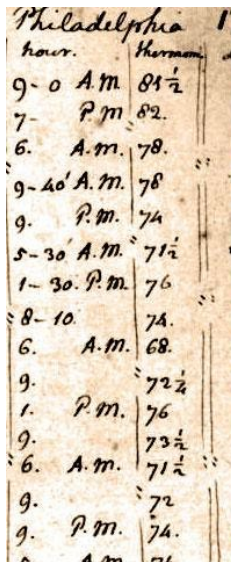 Philadelphia 1
hour. thermom
9-0 A.M 81 1/2
7- P M 82.
6. A.M. 78.
9-40' A.M. 78
9. P.M. 74
5-30' A.M. 71 1/2
1-30. P.M. 76
8-10. 74.
6. A.M. 68.
9. 72 1/4
1. P.M. 76
9. 73 1/2
6. A.M. 71 1/2
9. 72
9. P.M. 74.